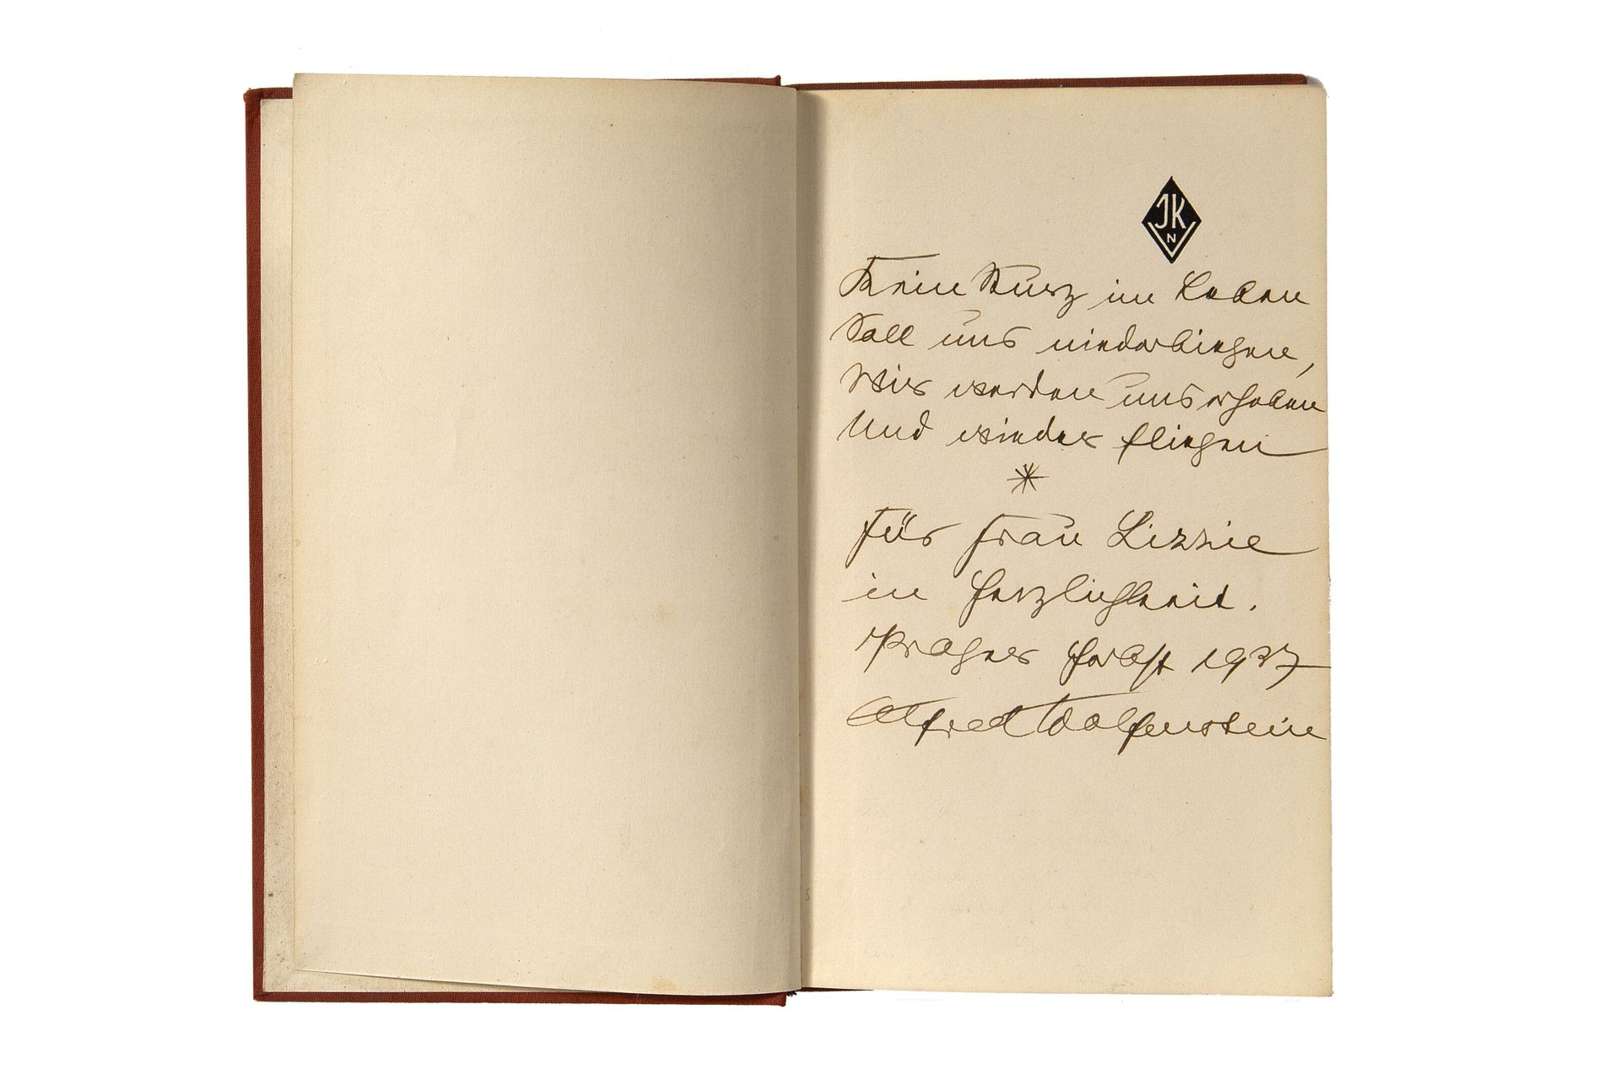 JK
N
Kein Sturz im Leben
Soll uns niederbiegen,
Wir werden uns erheben
Und wieder fliegen
*
Für Frau Lizzie
in Herzlichkeit.
Prager Herbst 1937
Alfred Wolfenstein